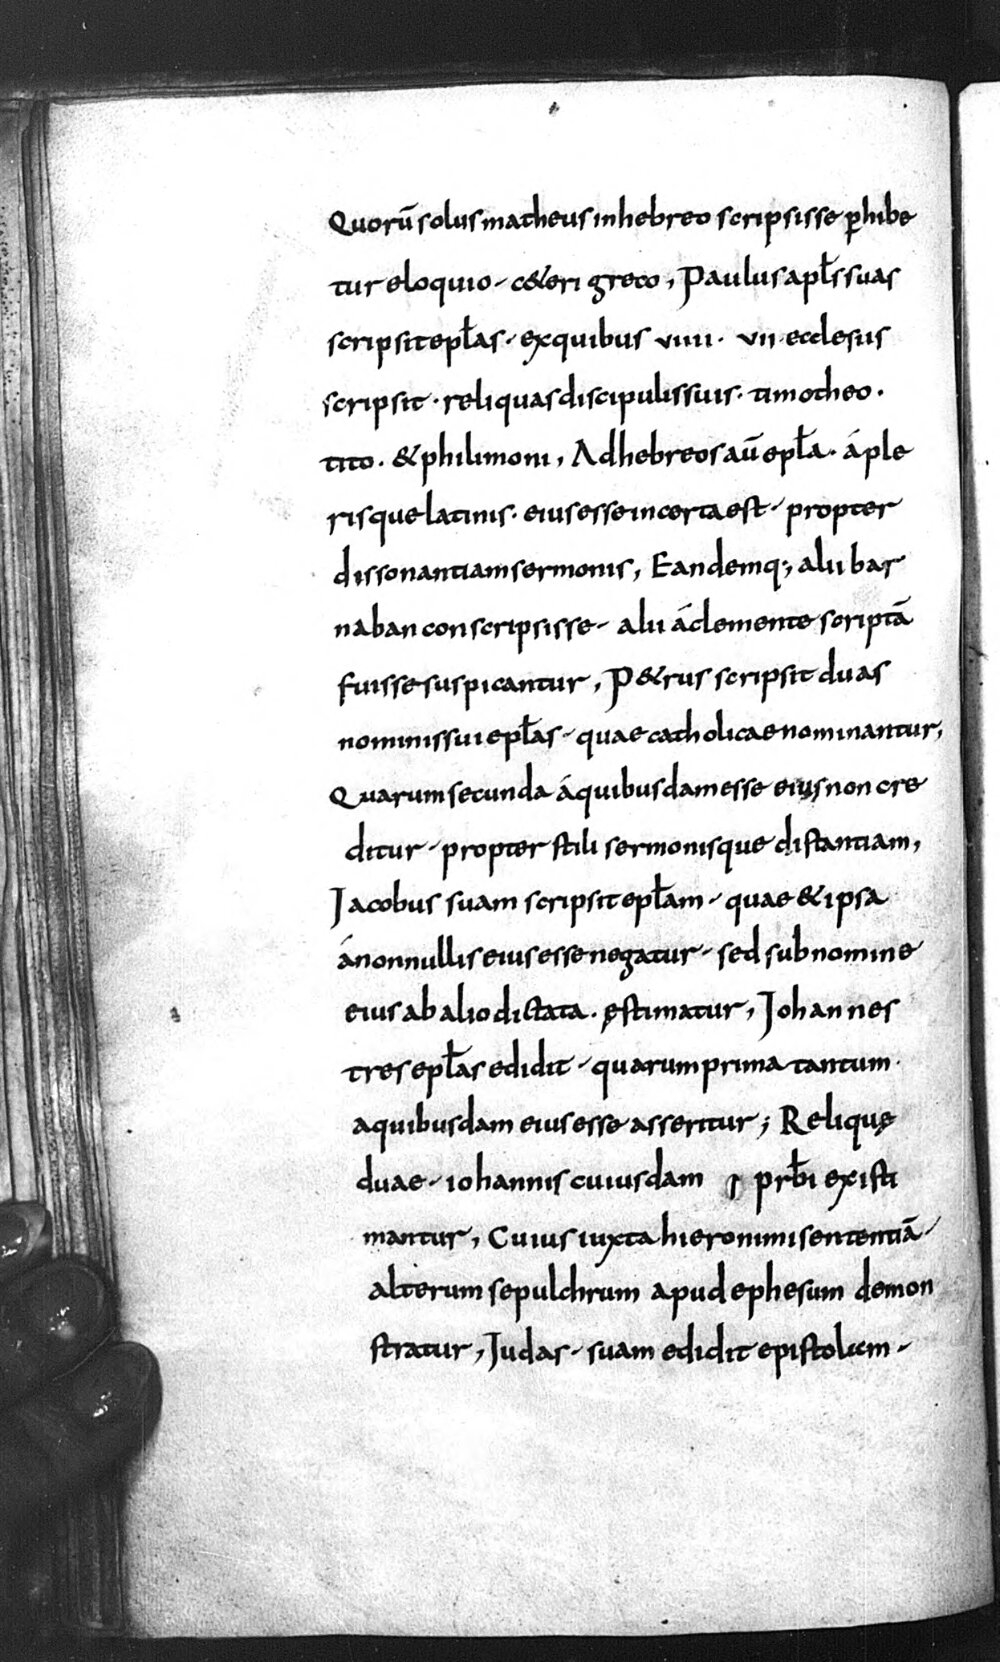 Quorū solus matheus in hebreo scripsisse ꝑhibe
tur eloquio- c&eri greco, Paulus apłs suas
scripsit epłas- ex quibus viiii· vii· ecclesiis
scripsit· reliquas discipulis suis· timotheo·
tito· & philimoni, Ad hebreos aū epła· á ple
risque latinis· eius esse incerta est- propter
dissonantiam sermonis, Eandemq;, alii bar
naban conscripsisse- alii á clemente scriptā
fuisse suspicantur, P&rus scripsit duas
nominis sui epłas- quae catholicae nominantur,
Quarum secunda á quibusdam esse eius non cre
ditur- propter stili sermonisque distantiam,
Jacobus suam scripsit epłam- quae & ipsa
á nonnullis eius esse negatur- sed sub nomine
eius ab alio dictata· ęstimatur, Johannes
tres epłas edidit- quarum prima tantum
a quibusdam eius esse asseritur; Reliquę
duae- iohannis cuiusdam prb̄i existi
mantur, Cuius iuxta hieronimi sententiā-
alterum sepulchrum apud ephesum demon
stratur, Judas- suam edidit epistolam-